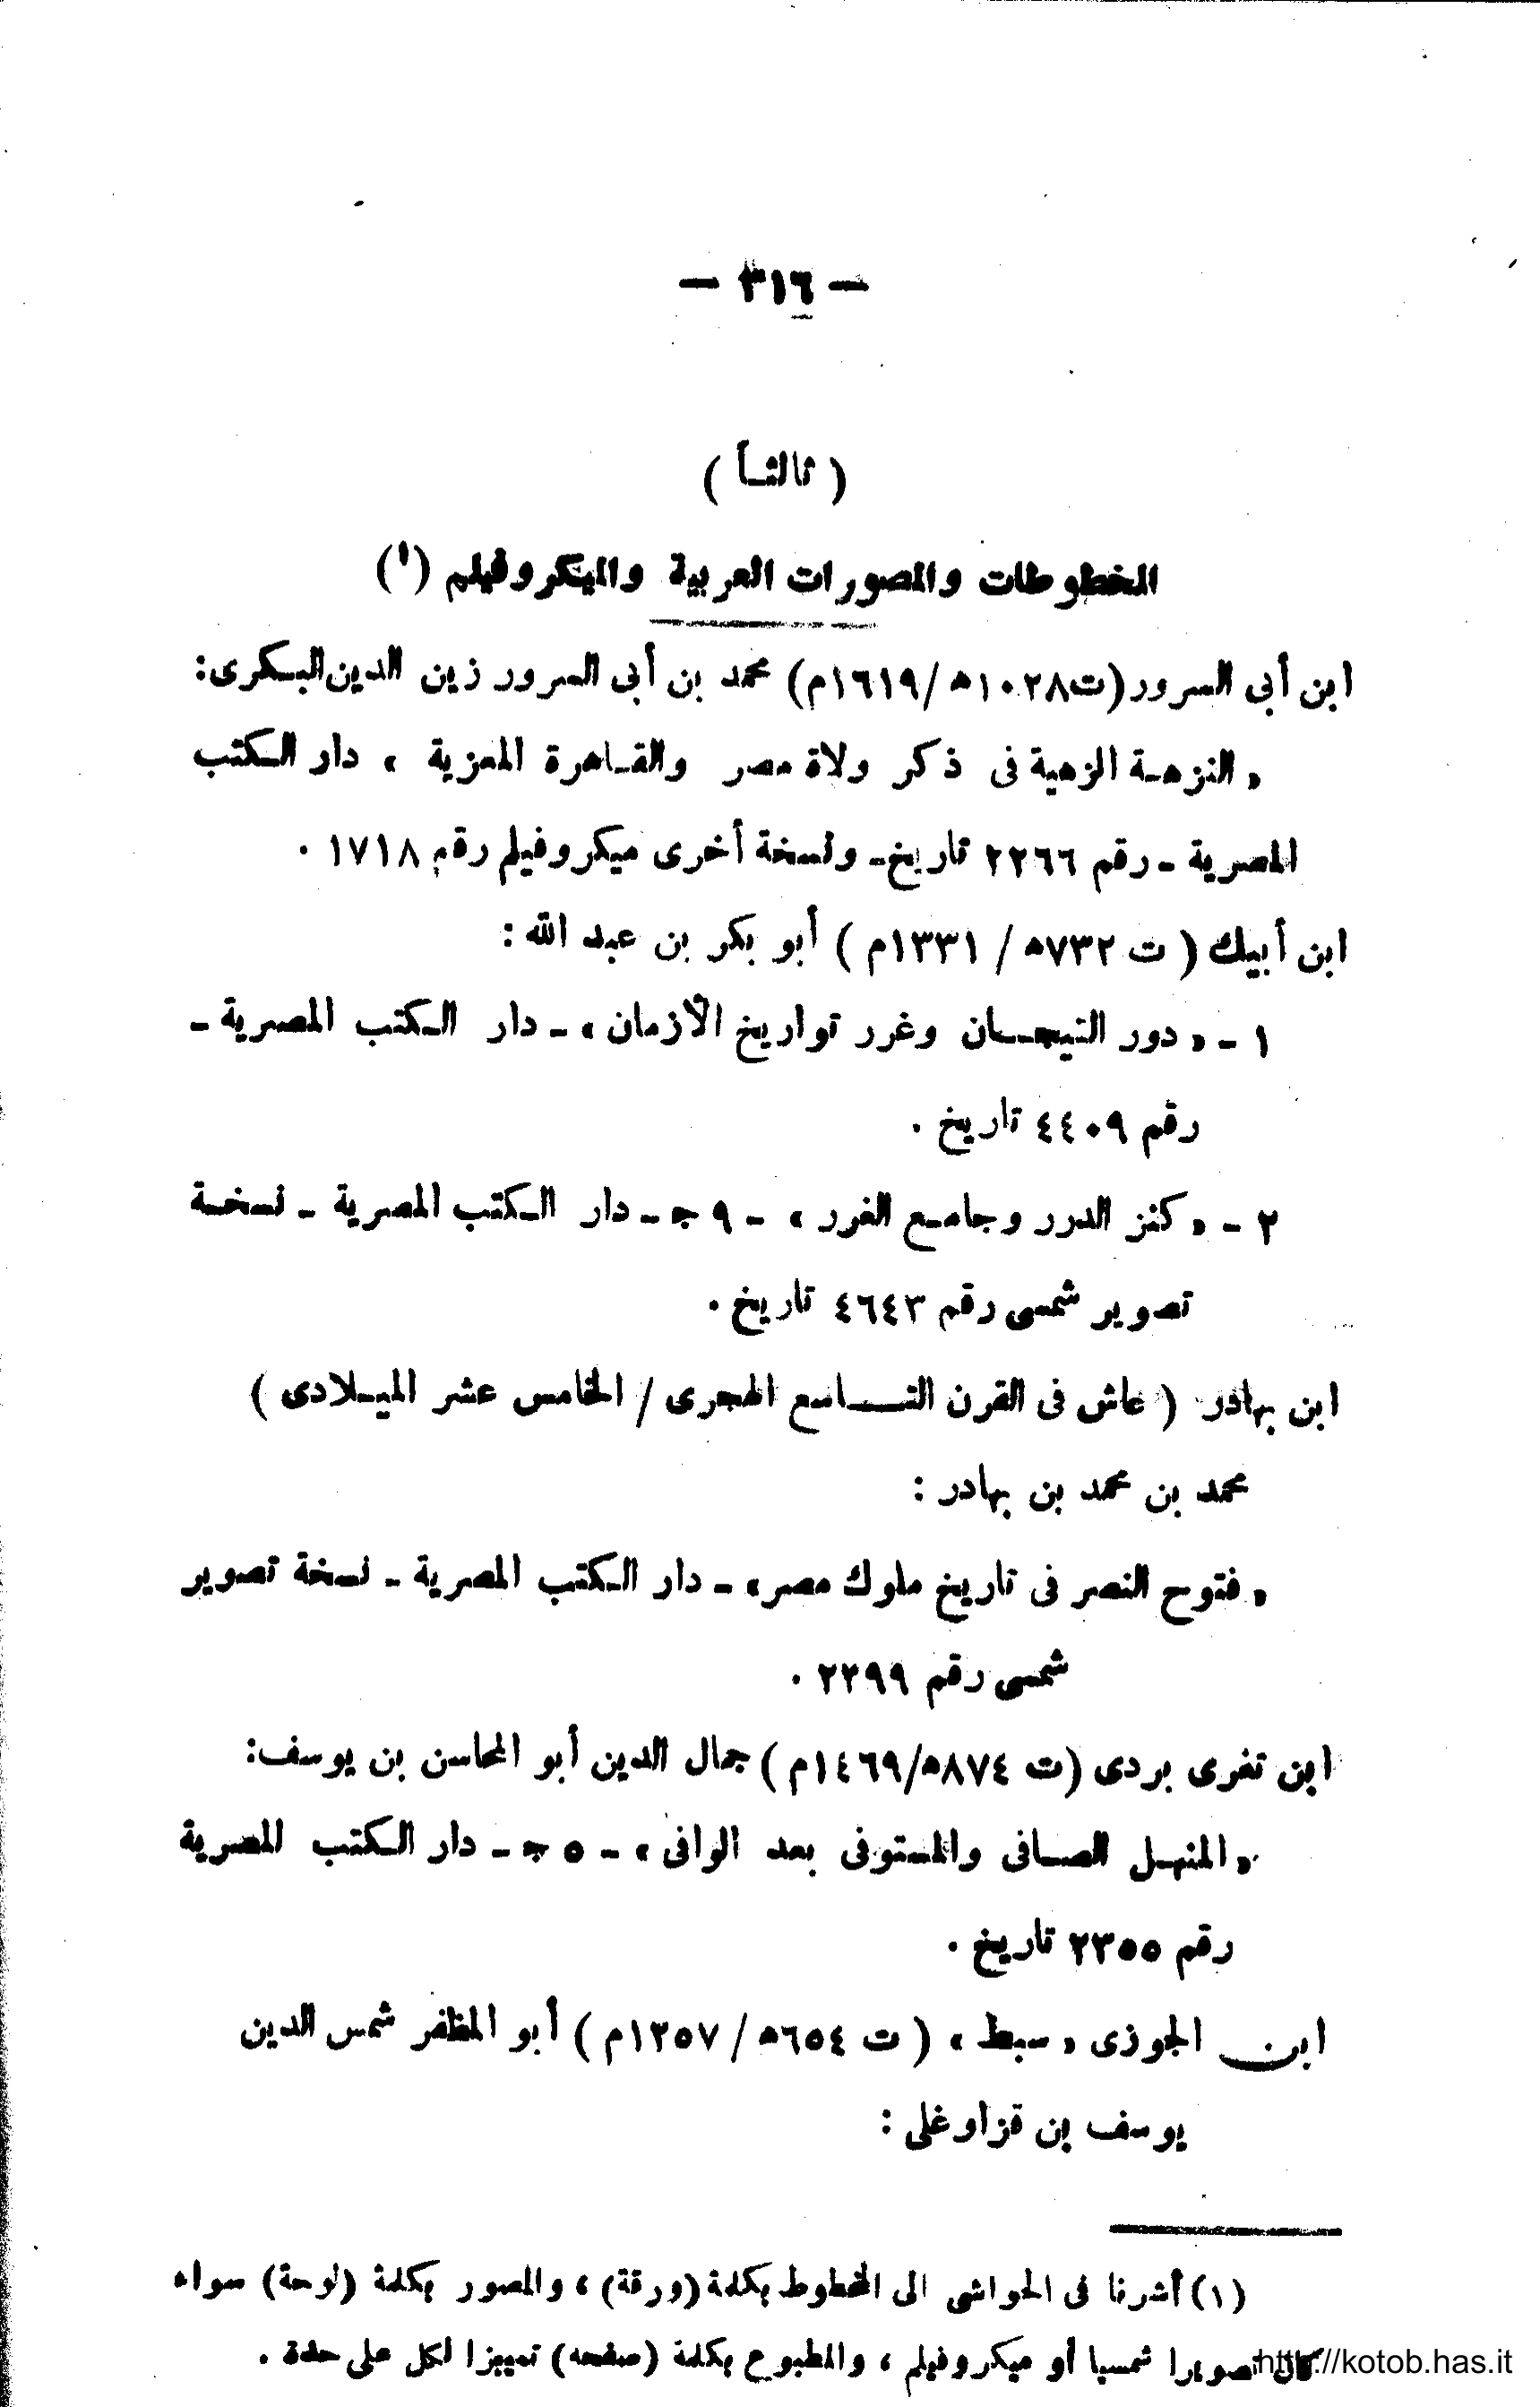 — ٣١٦ —
( ثالثـاً )
المخطوطات والمصورات العربية والميكروفيلم (١)
ابن أبى السرور (ت١٠٢٨ه/١٦١٩م) محمد بن أبى السرور زين الدين البـكرى:
« النزهـة الزهية فى ذكر ولاة مصر والقـاهرة المعزية ، دار الـكتب
المصرية ـ رقم ٢٢٦٦ تاريخ ـ ونسخة أخرى ميكروفيلم رقم ١٧١٨ .
ابن أبيك ( ت ٧٣٢ه / ١٣٣١م ) أبو بكر بن عبد الله :
١ ـ « درر التيجـان وغرر تواريخ الأزمان » ـ دار الـكتب المصرية ـ
رقم ٤٤٠٩ تاريخ .
٢ ـ « كنز الدرر وجامـع الغرر » ـ ٩ ج ـ دار الـكتب المصرية ـ نسخـة
تصوير شمسى رقم ٤٦٤٣ تاريخ .
ابن بهادر ( عاش فى القرن التـاسع الهجرى / الخامس عشر الميـلادى )
محمد بن محمد بن بهادر :
« فتوح النصر فى تاريخ ملوك مصر » ـ دار الـكتب المصرية ـ نسخة تصوير
شمسى رقم ٢٣٩٩ .
ابن تغرى بردى (ت ٨٧٤ه/١٤٦٩م ) جمال الدين أبو المحاسن بن يوسف:
« المنهـل الصـافى والمستوفى بعد الوافى » ـ ٥ ج ـ دار الـكتب المصرية
رقم ٢٣٥٥ تاريخ .
ابن الجوزى « سبط » ( ت ٦٥٤ه / ١٢٥٧م ) أبو المظفر شمس الدين
يوسف بن قزاوغلى :
(١) أشرنا فى الحواشى الى المخطوط بكلمة (ورقة) ، والمصور بكلمة (لوحة) سواء
كان تصويرا شمسيا أو ميكروفيلم ، والمطبوع بكلمة (صفحه) تمييزا لكل على حدة .
http://kotob.has.it